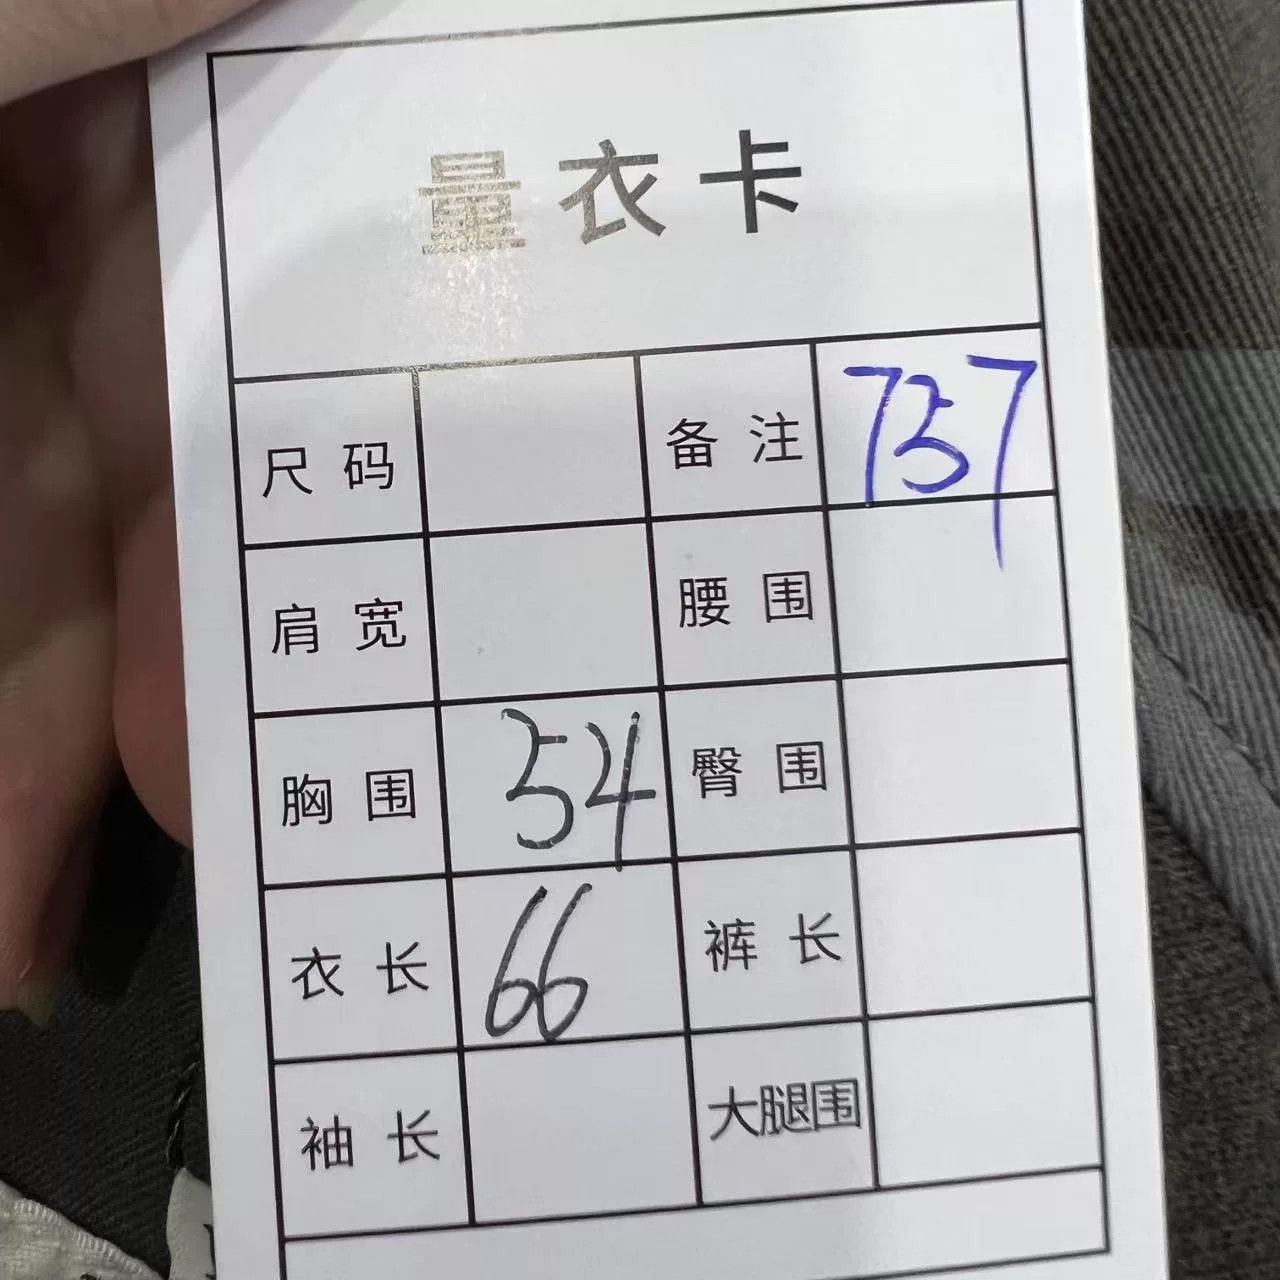 量衣卡
尺码 备注 757
肩宽 腰围
胸围 54 臀围
衣长 66 裤长
袖长 大腿围